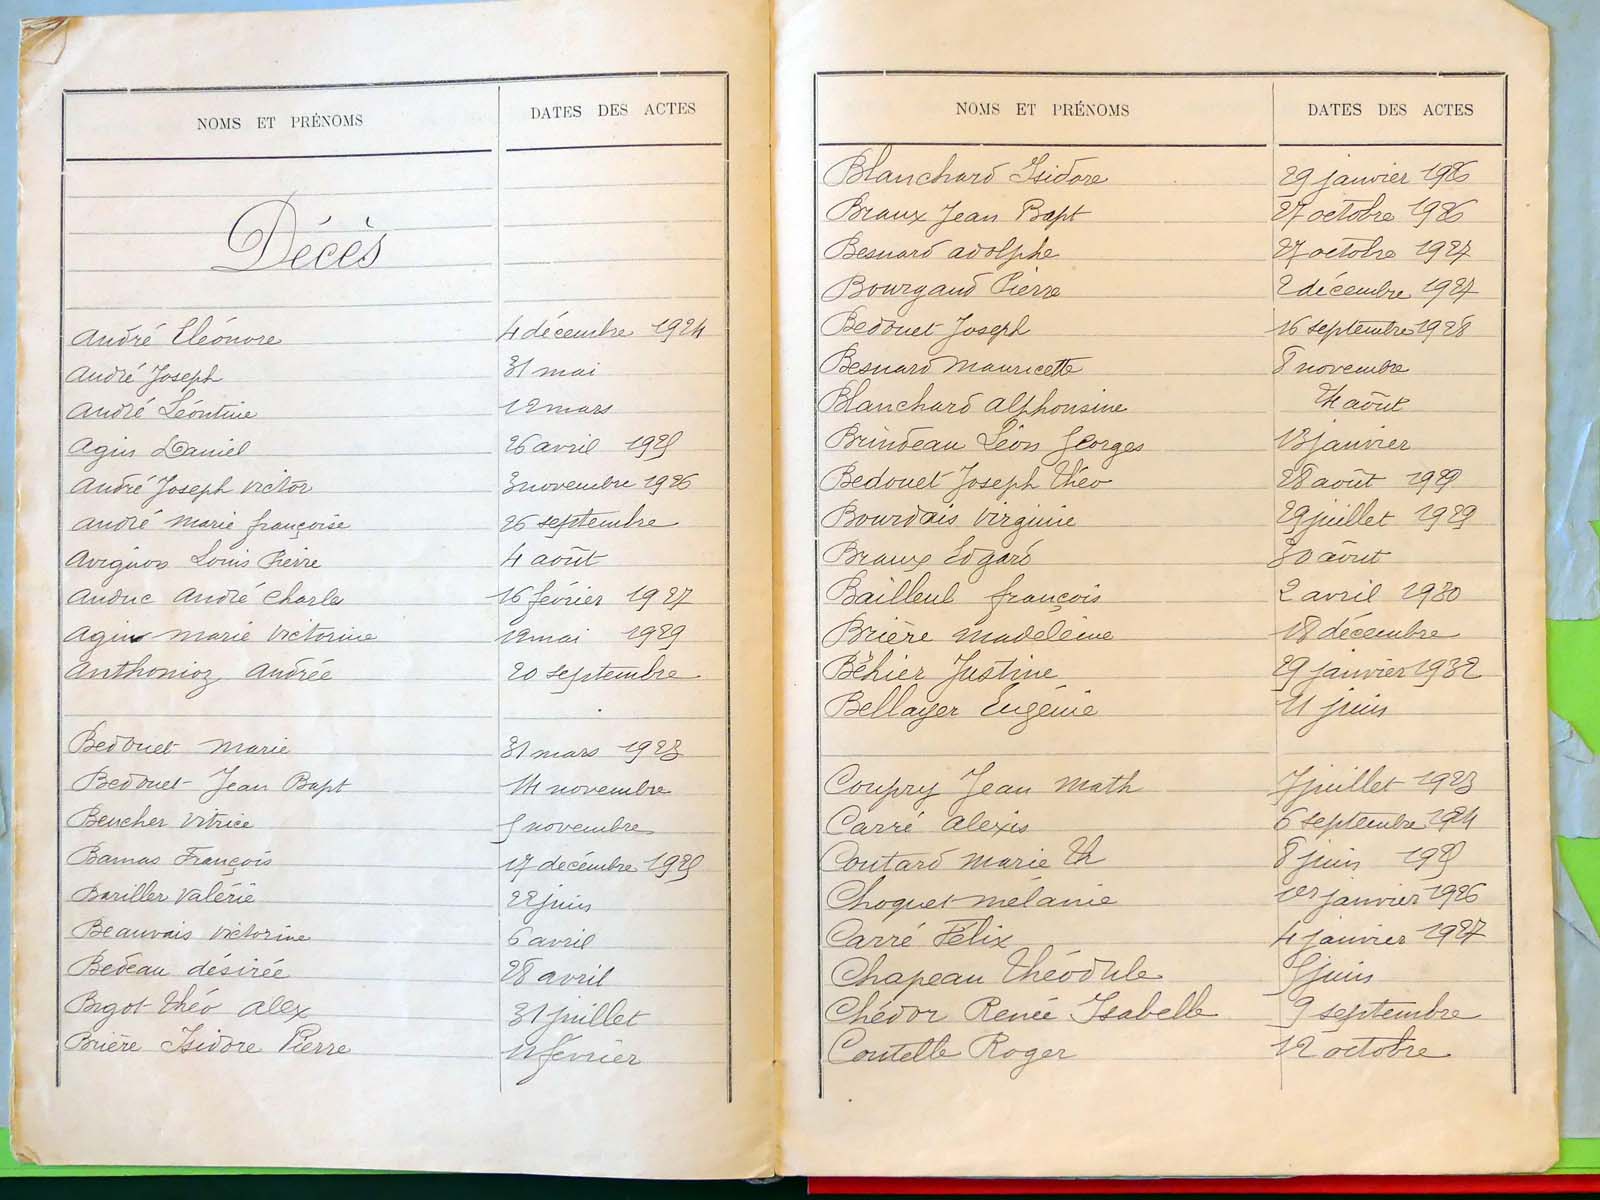 NOMS ET PRÉNOMS DATES DES ACTES
Décès
André Eléonore 4 décembre 1924
André Joseph 31 mai
André Léontine 12 mars
Agin Daniel 26 avril 1925
André Joseph Victor 3 novembre 1926
André Marie françoise 26 septembre
Avignon Louis Pierre 4 août
Anduc André Charles 16 février 1927
Agin Marie Victorine 12 mai 1929
Anthonioz Andrée 20 septembre
Bedouet Marie 31 mars 1923
Bedouet Jean Bapt 14 novembre
Beucher Vitrice 5 novembre
Bamas François 17 decémbre 1925
Bariller Valérie 22 juin
Beauvais Victorine 6 avril
Bedeau désirée 28 avril
Bigot Théo Alex 31 juillet
Brière Isidore Pierre 11 février
NOMS ET PRÉNOMS DATES DES ACTES
Blanchard Isidore 29 janvier 1926
Braux Jean Bapt 27 octobre 1926
Besnard Adolphe 27 octobre 1927
Bourgaud Pierre 2 décembre 1927
Bedouet Joseph 16 septembre 1928
Besnard Mauricette 8 novembre
Blanchard Alphonsine 24 août
Brindeau Léon Georges 13 janvier
Bedouet Joseph Théo 28 août 1929
Bourdais Virginie 29 juillet 1929
Braux Edgard 30 août
Bailleul françois 2 avril 1930
Brière Madeleine 18 décembre
Béhier Justine 29 janvier 1932
Bellayer Eugénie 11 juin
Coupry Jean Math 7 juillet 1923
Carré Alexis 6 septembre 1924
Coutard Marie Th 8 juin 1925
Choquet Mélanie 1er janvier 1926
Carré Félix 4 janvier 1927
Chapeau Théodule 5 juin
Chédor Renée Isabelle 9 septembre
Coutelle Roger 12 octobre